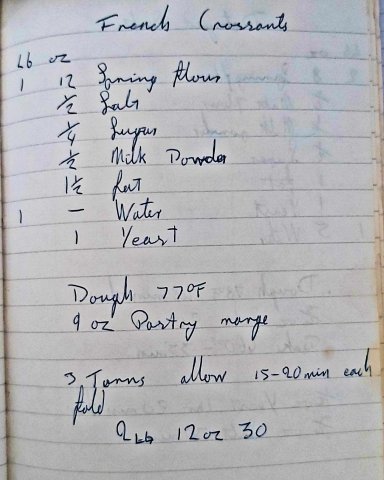 French Crossants
Lb oz
1 12 Spring flour
½ Salt
¼ Sugar
½ Milk Powder
1½ fat
1 — Water
1 Yeast
Dough 77°F
9 oz Pastry marge
3 Turns allow 15-20min each
fold
2Lb 12oz 30